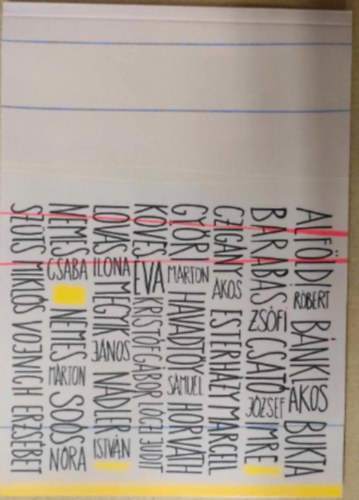 ALFÖLDI RÓBERT BÁNKI ÁKOS BUKTA
IMRE CSATÓ JÓZSEF
BARABÁS ZSÓFI
CZIGÁNY ÁKOS ESTERHÁZY MARCELL
GYŐRI MÁRTON HAVADTŐY SAMUEL HORVÁTH
ÉVA KRISTÓF GÁBOR ŐCZI JUDIT
LOVAS ILONA MEGYIK JÁNOS NÁDLER
NEMES CSABA NEMES MÁRTON SOÓS NÓRA
ISTVÁN
SZŰTS MIKLÓS VOJNICH ERZSÉBET